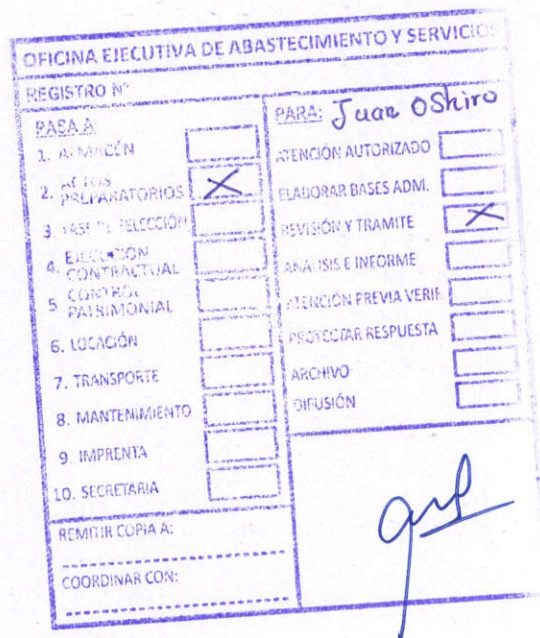 OFICINA EJECUTIVA DE ABASTECIMIENTO Y SERVICIOS
REGISTRO N°
PASA A:
1. ALMACÉN
2. ACTOS
PREPARATORIOS X
3. FASE DE SELECCIÓN
4. EJECUCIÓN
CONTRACTUAL
5 CONTROL
PATRIMONIAL
6. LOCACIÓN
7. TRANSPORTE
8. MANTENIMIENTO
9. IMPRENTA
10. SECRETARIA
REMITIR COPIA A:
COORDINAR CON:
PARA: Juan OShiro
ATENCIÓN AUTORIZADO
ELABORAR BASES ADM.
REVISIÓN Y TRAMITE X
ANÁLISIS E INFORME
ATENCIÓN PREVIA VERIF.
PROYECTAR RESPUESTA
ARCHIVO
DIFUSIÓN